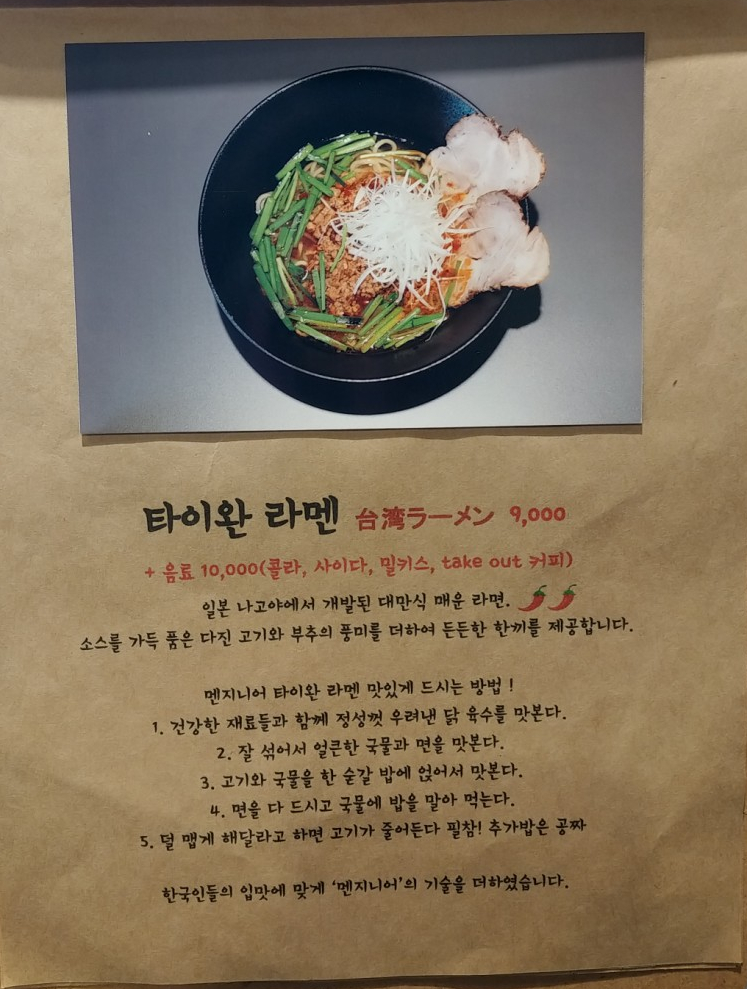 타이완 라멘 台湾ラーメン 9,000
+ 음료 10,000(콜라, 사이다, 밀키스, take out 커피)
일본 나고야에서 개발된 대만식 매운 라면. 🌶️🌶️
소스를 가득 품은 다진 고기와 부추의 풍미를 더하여 든든한 한끼를 제공합니다.
멘지니어 타이완 라멘 맛있게 드시는 방법 !
1. 건강한 재료들과 함께 정성껏 우려낸 닭 육수를 맛본다.
2. 잘 섞어서 얼큰한 국물과 면을 맛본다.
3. 고기와 국물을 한 숟갈 밥에 얹어서 맛본다.
4. 면을 다 드시고 국물에 밥을 말아 먹는다.
5. 덜 맵게 해달라고 하면 고기가 줄어든다 필참! 추가밥은 공짜
한국인들의 입맛에 맞게 '멘지니어'의 기술을 더하였습니다.